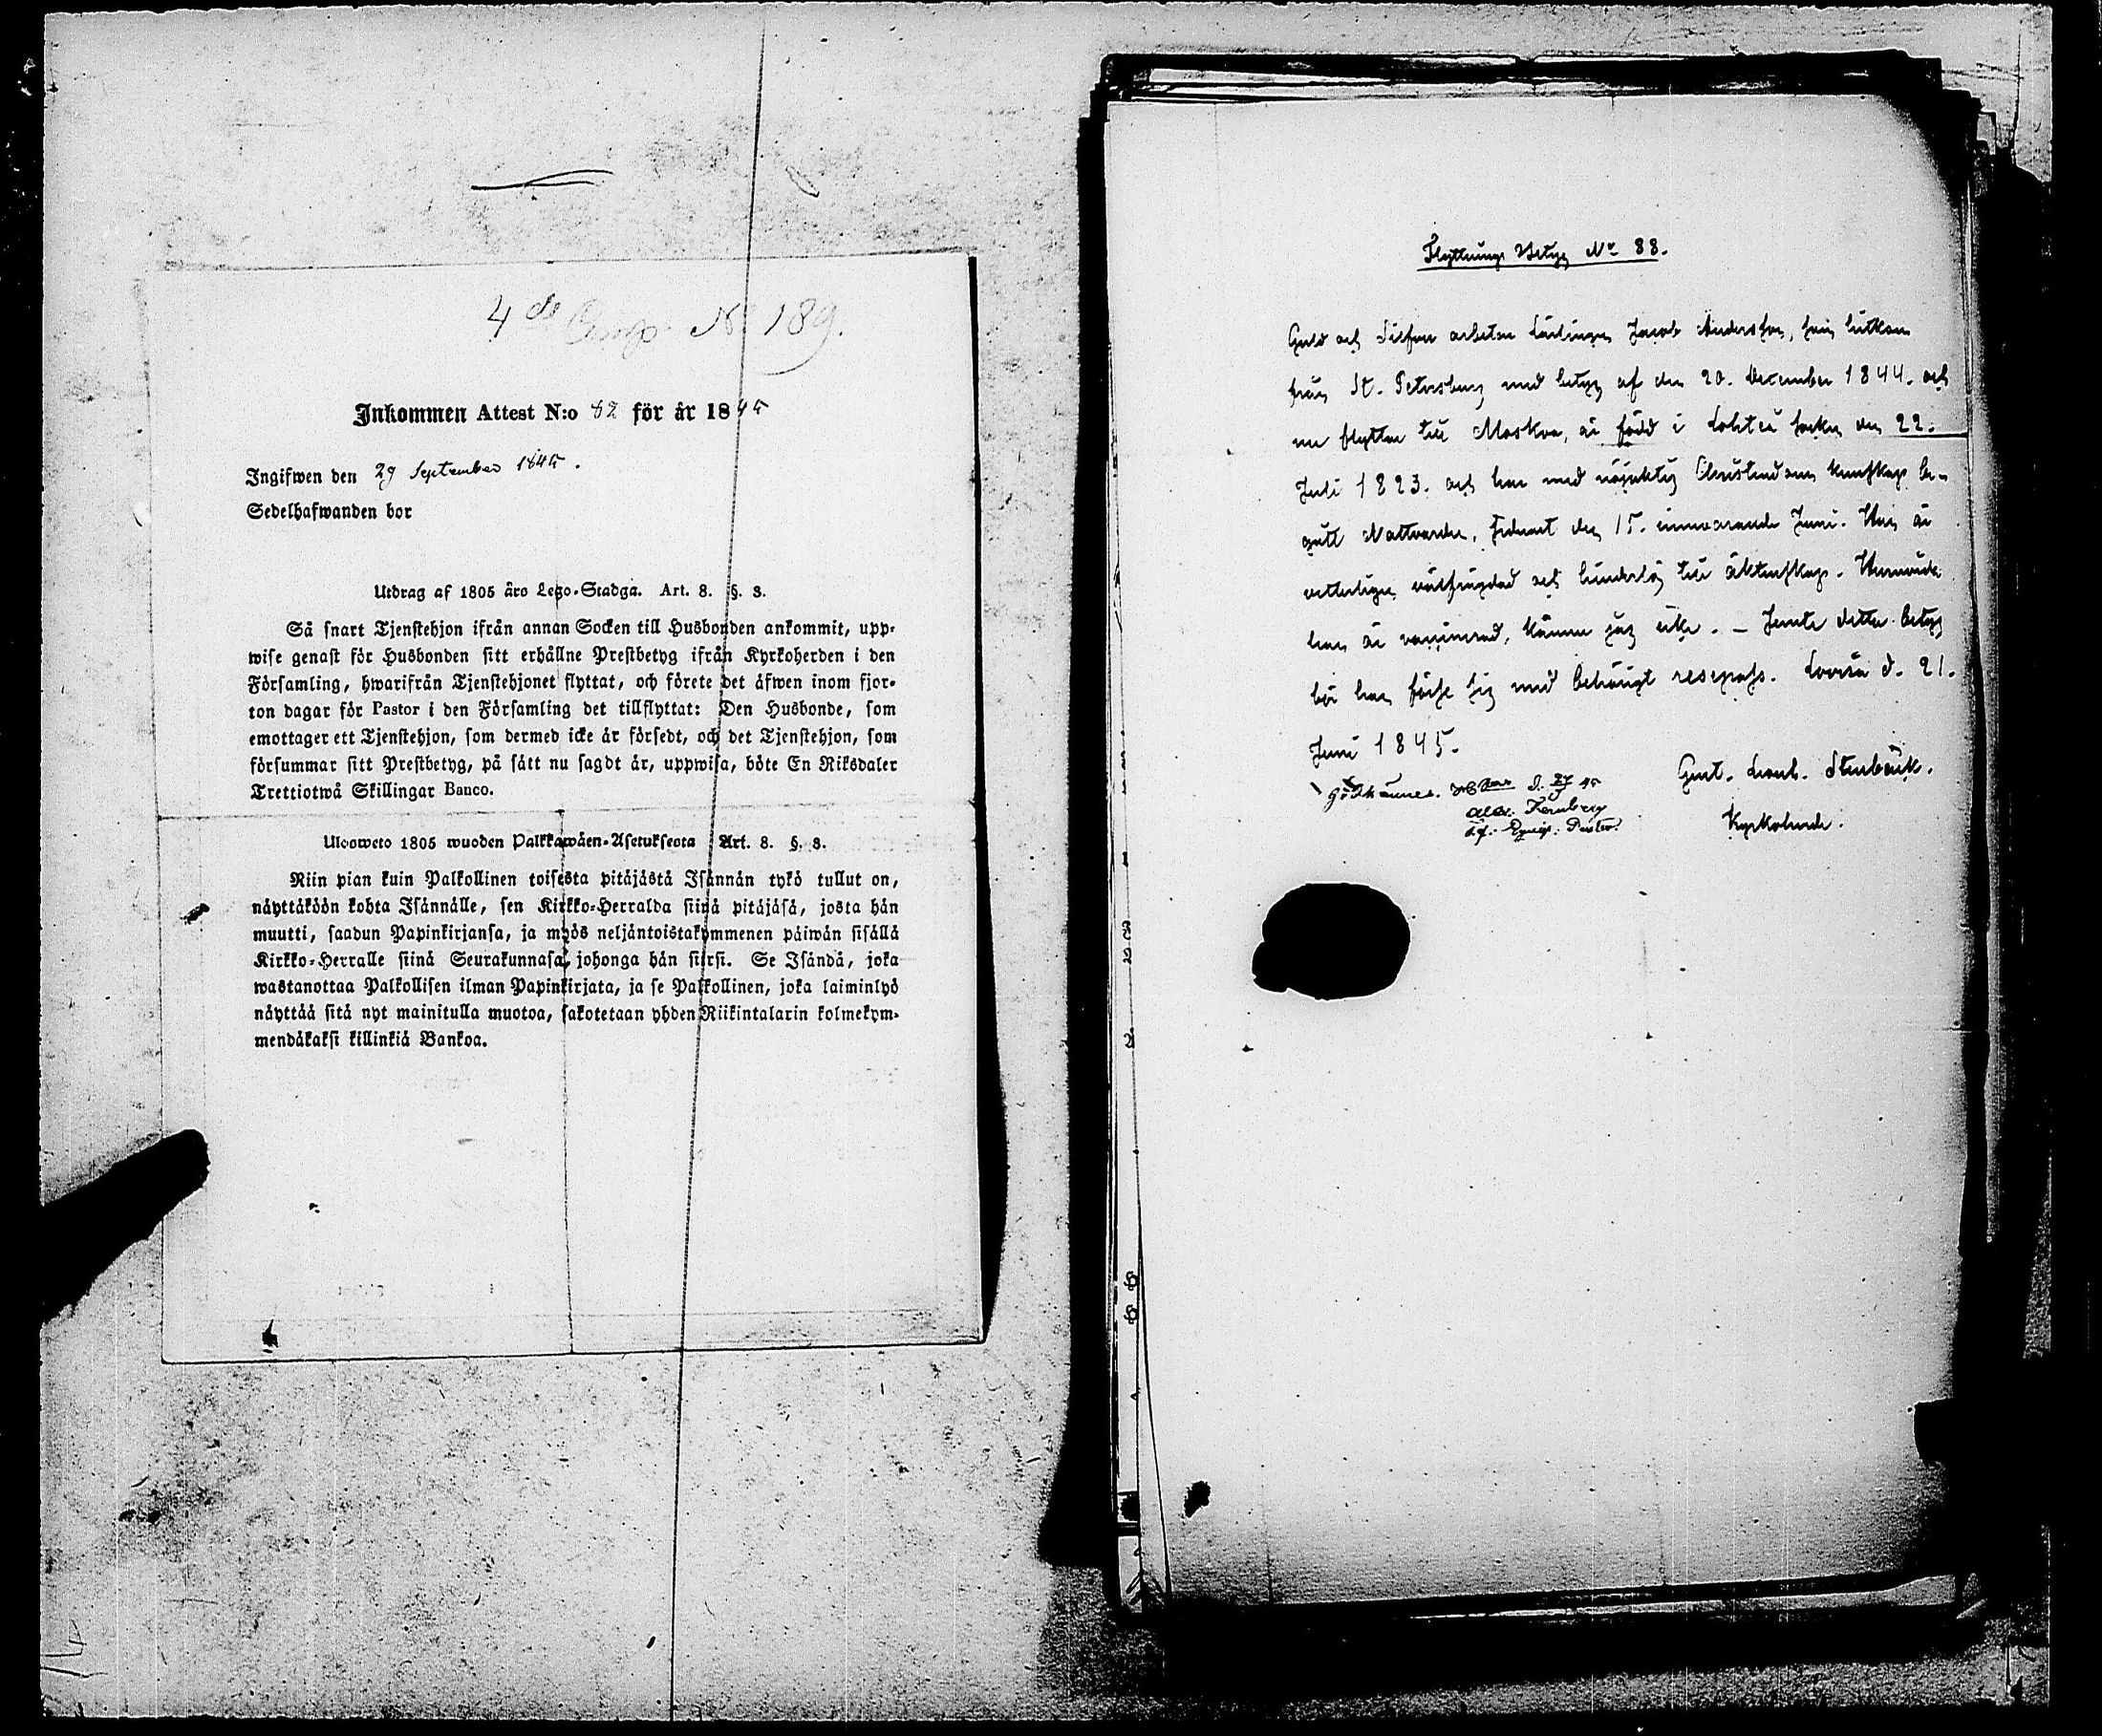 4 de Comp. No 189.
Inkommen Attest N:o 82 för år 1845
Ingifwen den 29 September 1845.
Sedelhafwanden bor
Utdrag af 1805 års Lego-Stadga. Art. 8. §. 3.
Så snart Tjenstehjon ifrån annan Socken till Husbonden ankommit, upp-
wise genast för Husbonden sitt erhållne Prestbetyg ifrån Kyrkoherden i den
Församling, hwarifrån Tjenstehjonet flyttat, och förete det äfwen inom fjor-
ton dagar för Pastor i den Församling det tillflyttat: Den Husbonde, som
emottager ett Tjenstehjon, som dermed icke är försedt, och det Tjenstehjon, som
försummar sitt Prestbetyg, på sätt nu sagdt är, uppwisa, böte En Riksdaler
Trettiotwå Skillingar Banco.
Ulosweto 1805 wuoden Palkkawäen-Asetuksesta Art. 8. §. 3.
Niin pian kuin Palkollinen toisesta pitäjästä Isännän tykö tullut on,
näyttäköön kohta Isännälle, sen Kirkko-Herralda siinä pitäjäsä, josta hän
muutti, saadun Papinkirjansa, ja myös neljäntoistakymmenen päiwän sisällä
Kirkko-Herralle siinä Seurakunnasa, johonga hän siirsi. Se Isändä, joka
wastanottaa Palkollisen ilman Papinkirjata, ja se Palkollinen, joka laiminlyö
näyttää sitä nyt mainitulla muotoa, sakotetaan yhden Riikintalarin kolmekym-
mendäkaksi killinkiä Bankoa.
Flyttnings Betyg No 88.
Guld och Silfver arbetare Lärlingen Jacob Andersson, som hitkom
från St. Petersburg med betyg af den 20. December 1844. och
nu flyttar till Moskva, är född i Lohteå socken den 22.
Juli 1823. och har med nöjaktig Christendoms kunskap be-
gått Nattvarden, sednast den 15. innevarande Juni. Han är
veterligen välfrägdad och hinderlös till äktenskap. Huruvida
han är vaccinerad, känner jag icke. — Jemte detta betyg
bör han förse sig med behörigt resepass. Lovisa d. 21.
Juni 1845.
Gust. Leonh. Stenbäck.
Kyrkoherde.
Godkännes. d. 27 45
Alex.
Pastor.